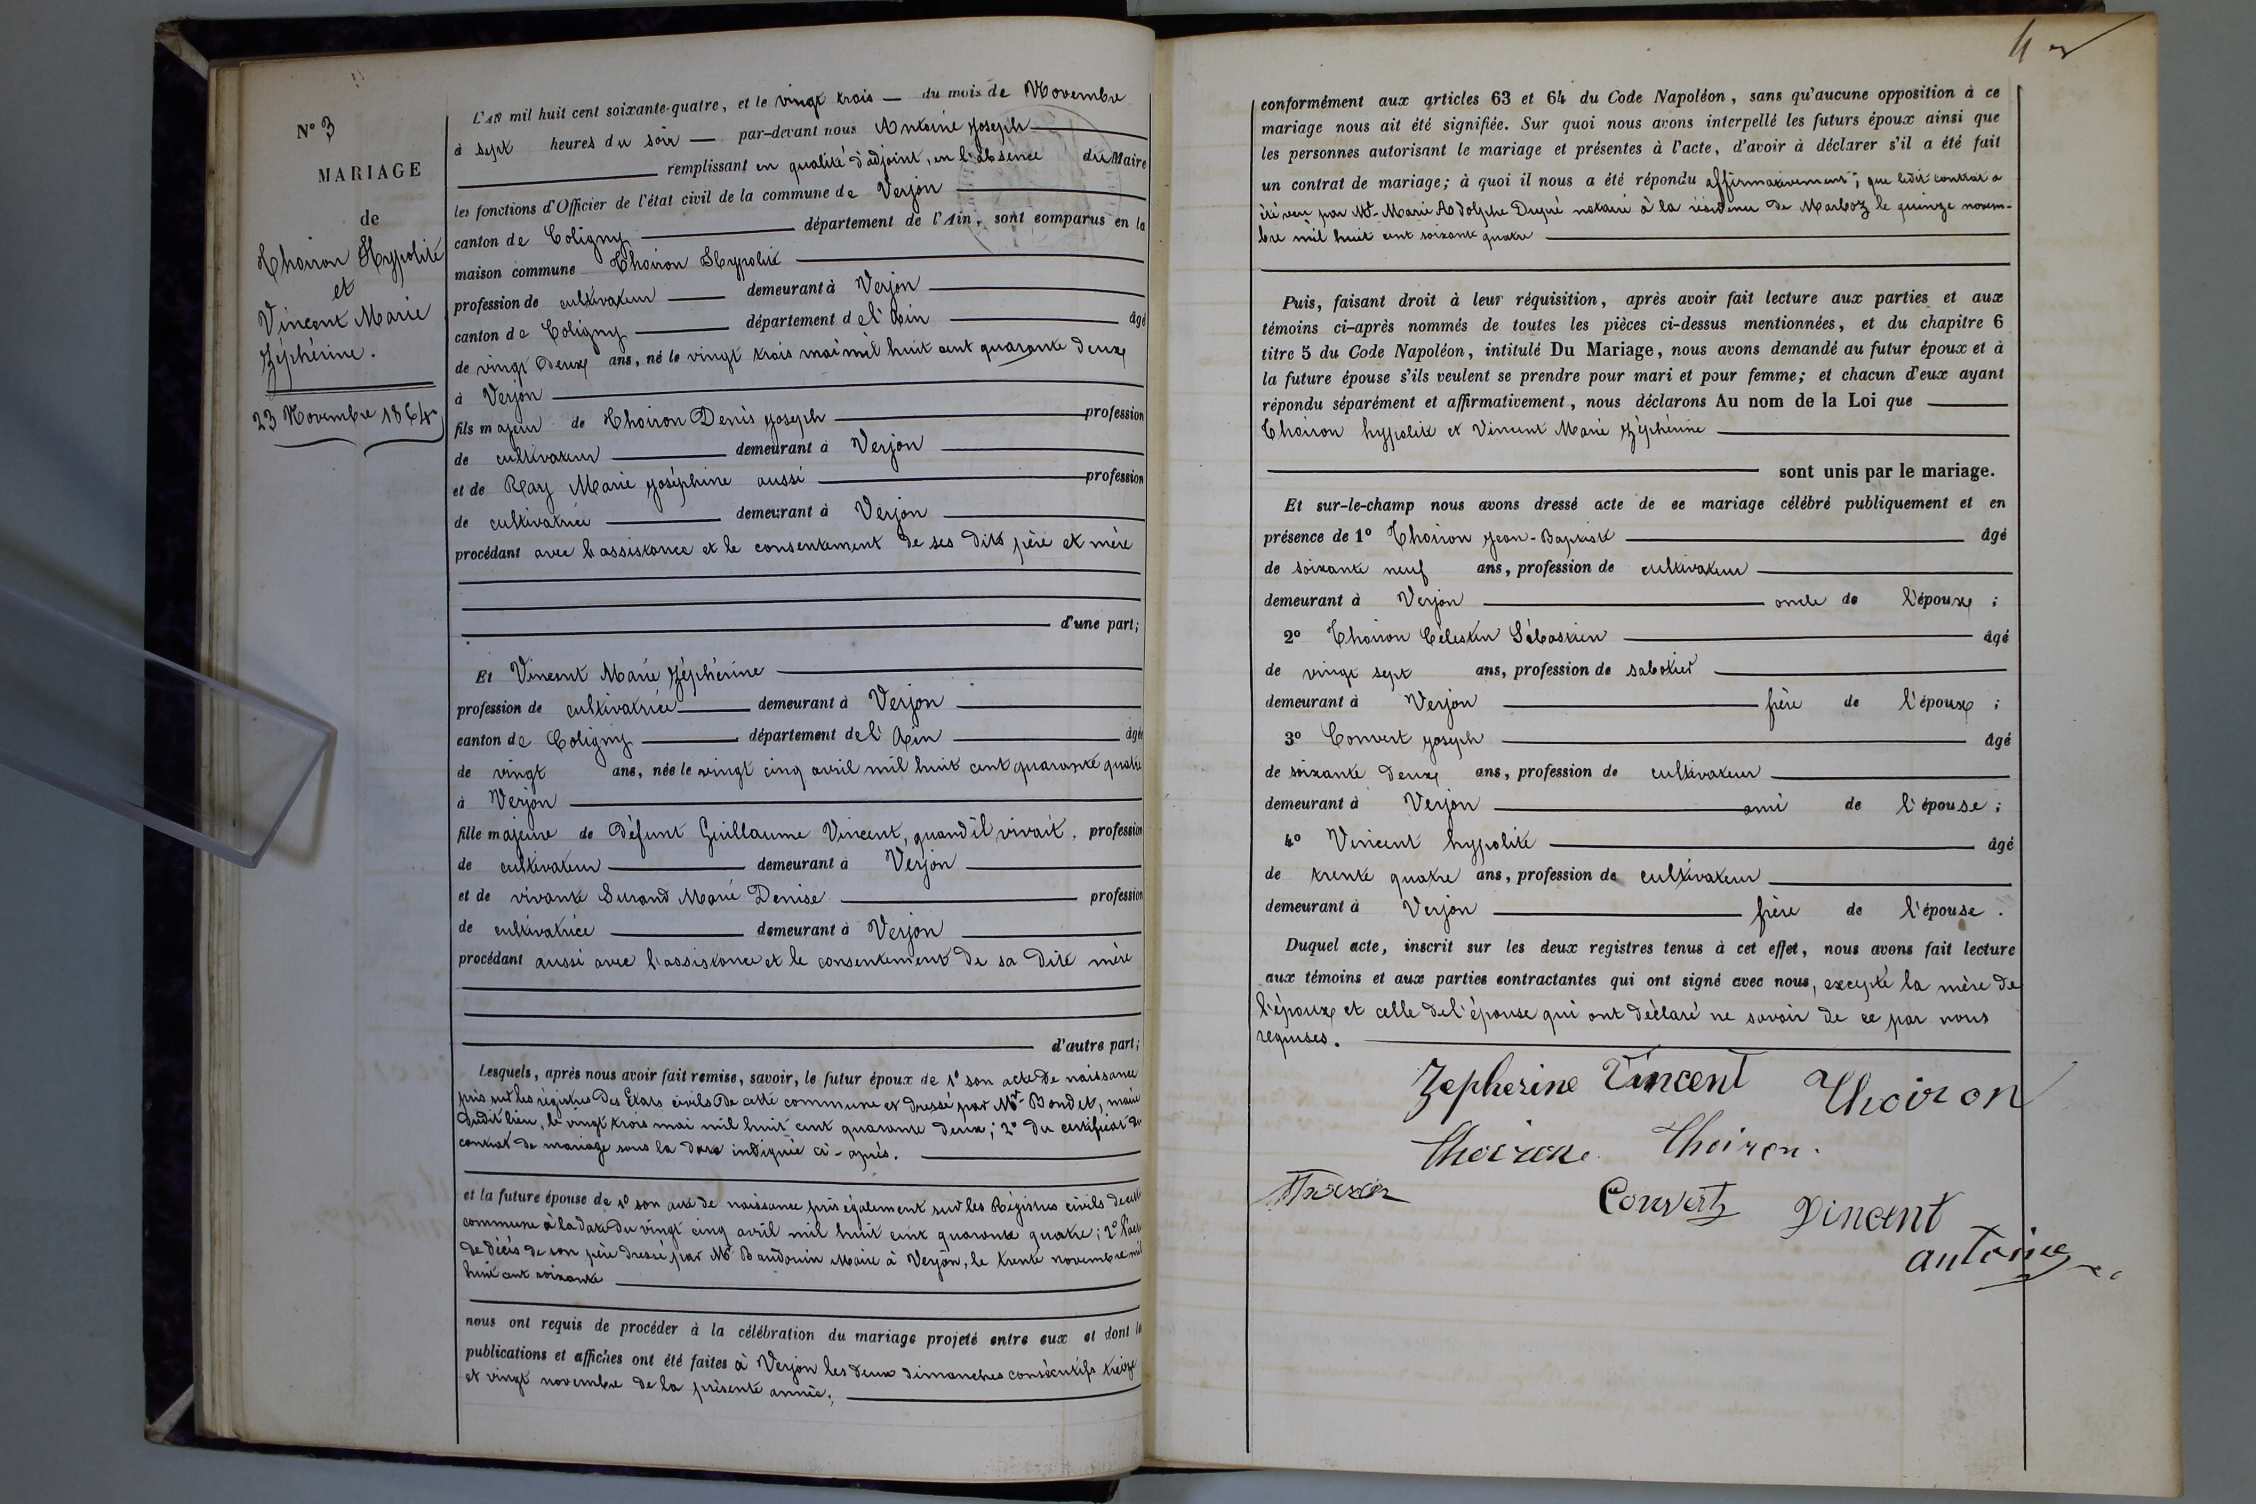 N° 3
MARIAGE
de
Thoiron Hypolite
et
Vincent Marie
Zéphérine.
23 Novembre 1864
L'AN mil huit cent soixante-quatre, et le vingt trois — du mois de Novembre
à sept heures du soir — par-devant nous Antoine Joseph
remplissant en qualité d'adjoint, en l'absence du Maire
les fonctions d'Officier de l'état civil de la commune de Verjon
canton de Coligny département de l'Ain, sont comparus en la
maison commune Thoiron Hypolite
profession de cultivateur demeurant à Verjon
canton de Coligny département de l'Ain âgé
de vingt deux ans, né le vingt trois mai mil huit cent quarante deux
à Verjon
fils majeur de Thoiron Denis Joseph profession
de cultivateur demeurant à Verjon
et de Ray Marie Joséphine aussi profession
de cultivatrice demeurant à Verjon
procédant avec l'assistance et le consentement de ses dits père et mère
d'une part;
Et Vincent Marie Zéphérine
profession de cultivatrice demeurant à Verjon
canton de Coligny département de l'Ain âgée
de vingt ans, née le vingt cinq avril mil huit cent quarante quatre
à Verjon
fille majeure de Défunt Guillaume Vincent, quand il vivait, profession
de cultivateur demeurant à Verjon
et de vivante Surand Marie Denise profession
de cultivatrice demeurant à Verjon
procédant aussi avec l'assistance et le consentement de sa dite mère
d'autre part;
Lesquels, après nous avoir fait remise, savoir, le futur époux de 1° son acte de naissance
pris sur les régistres des Etats civils de cette commune et dressé par Mr Bondet, maire
dudit lieu, le vingt trois mai mil huit cent quarante deux; 2° du certificat du
contrat de mariage sous la date indiquée ci-après.
et la future épouse de 1° son acte de naissance pris également sur les Régistres civils de cette
commune à la date du vingt cinq avril mil huit cent quarante quatre; 2° l'acte
de décès de son père dressé par Mr Baudouin Maire à Verjon, le trente novembre mil
huit cent soixante
nous ont requis de procéder à la célébration du mariage projeté entre eux et dont les
publications et affiches ont été faites à Verjon les deux dimanches consécutifs treize
et vingt novembre de la présente année;
4
conformément aux articles 63 et 64 du Code Napoléon, sans qu'aucune opposition à ce
mariage nous ait été signifiée. Sur quoi nous avons interpellé les futurs époux ainsi que
les personnes autorisant le mariage et présentes à l'acte, d'avoir à déclarer s'il a été fait
un contrat de mariage; à quoi il nous a été répondu affirmativement; que ledit contrat a
été reçu par Mr. Marie Adolphe Dupré notaire à la résidence de Marboz le quinze novem-
bre mil huit cent soixante quatre
Puis, faisant droit à leur réquisition, après avoir fait lecture aux parties et aux
témoins ci-après nommés de toutes les pièces ci-dessus mentionnées, et du chapitre 6
titre 5 du Code Napoléon, intitulé Du Mariage, nous avons demandé au futur époux et à
la future épouse s'ils veulent se prendre pour mari et pour femme; et chacun d'eux ayant
répondu séparément et affirmativement, nous déclarons Au nom de la Loi que
Thoiron hypolite et Vincent Marie Zéphérine
sont unis par le mariage.
Et sur-le-champ nous avons dressé acte de ce mariage célébré publiquement et en
présence de 1° Thoiron Jean-Baptiste âgé
de soixante neuf ans, profession de cultivateur
demeurant à Verjon oncle de l'époux;
2° Thoiron Célestin Sébastien âgé
de vingt sept ans, profession de sabotier
demeurant à Verjon frère de l'époux;
3° Convert Joseph âgé
de soixante deux ans, profession de cultivateur
demeurant à Verjon ami de l'épouse;
4° Vincent hypolite âgé
de trente quatre ans, profession de cultivateur
demeurant à Verjon frère de l'épouse.
Duquel acte, inscrit sur les deux registres tenus à cet effet, nous avons fait lecture
aux témoins et aux parties contractantes qui ont signé avec nous, excepté la mère de
l'époux et celle de l'épouse qui ont déclaré ne savoir de ce par nous
requises.
Zepherine Vincent Thoiron
Thoiron Thoiron.
Convert Vincent
antoine